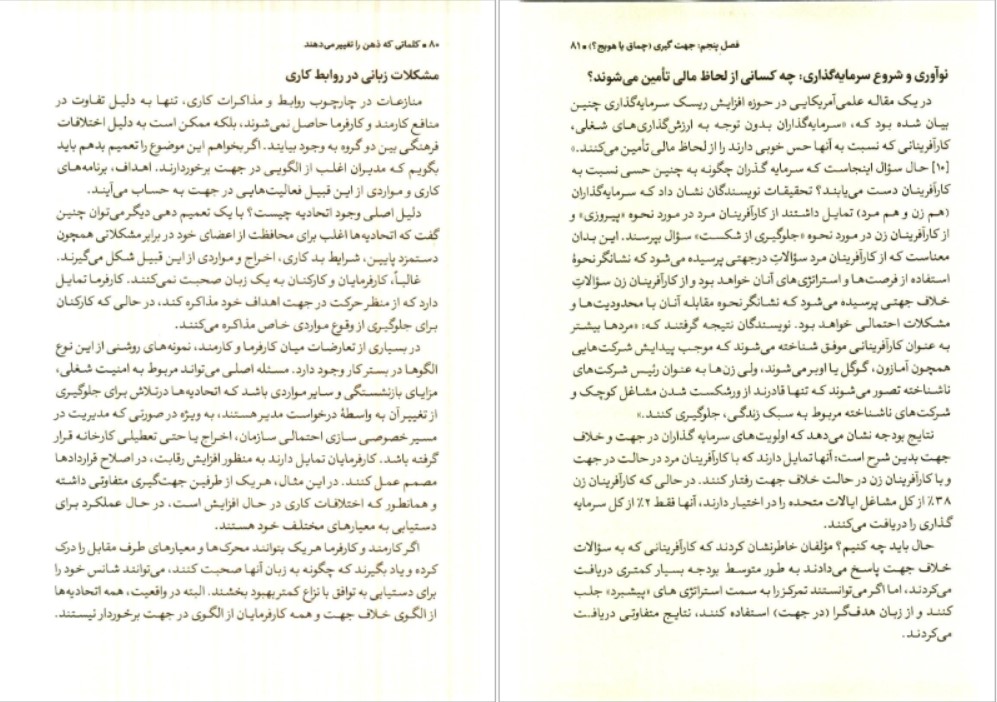 ۸۰ • کلماتی که ذهن را تغییر می‌دهند
مشکلات زبانی در روابط کاری
منازعات در چارچوب روابط و مذاکرات کاری، تنها به دلیل تفاوت در
منافع کارمند و کارفرما حاصل نمی‌شوند، بلکه ممکن است به دلیل اختلافات
فرهنگی بین دو گروه به وجود بیایند. اگر بخواهم این موضوع را تعمیم بدهم باید
بگویم که مدیران اغلب از الگویی در جهت برخوردارند. اهداف، برنامه‌های
کاری و مواردی از این قبیل فعالیت‌هایی در جهت به حساب می‌آیند.
دلیل اصلی وجود اتحادیه چیست؟ با یک تعمیم دهی دیگر می‌توان چنین
گفت که اتحادیه‌ها اغلب برای محافظت از اعضای خود در برابر مشکلاتی همچون
دستمزد پایین، شرایط بد کاری، اخراج و مواردی از این قبیل شکل می‌گیرند.
غالباً، کارفرمایان و کارکنان به یک زبان صحبت نمی‌کنند. کارفرما تمایل
دارد که از منظر حرکت در جهت اهداف خود مذاکره کند، در حالی که کارکنان
برای جلوگیری از وقوع مواردی خاص مذاکره می‌کنند.
در بسیاری از تعارضات میان کارفرما و کارمند، نمونه‌های روشنی از این نوع
الگوها در بستر کار وجود دارد. مسئله اصلی می‌تواند مربوط به امنیت شغلی،
مزایای بازنشستگی و سایر مواردی باشد که اتحادیه‌ها درتلاش برای جلوگیری
از تغییر آن به واسطهٔ درخواست مدیر هستند، به ویژه در صورتی که مدیریت در
مسیر خصوصی سازی احتمالی سازمان، اخراج یا حتی تعطیلی کارخانه قرار
گرفته باشد. کارفرمایان تمایل دارند به منظور افزایش رقابت، در اصلاح قراردادها
مصمم عمل کنند. در این مثال، هر یک از طرفین جهت‌گیری متفاوتی داشته
و همانطور که اختلافات کاری در حال افزایش است، در حال عملکرد برای
دستیابی به معیارهای مختلف خود هستند.
اگر کارمند و کارفرما هر یک بتوانند محرک‌ها و معیارهای طرف مقابل را درک
کرده و یاد بگیرند که چگونه به زبان آنها صحبت کنند، می‌توانند شانس خود را
برای دستیابی به توافق با نزاع کمتر بهبود بخشند. البته در واقعیت، همه اتحادیه‌ها
از الگوی خلاف جهت و همه کارفرمایان از الگوی در جهت برخوردار نیستند.
فصل پنجم: جهت گیری (چماق یا هویج؟) • ۸۱
نوآوری و شروع سرمایه‌گذاری: چه کسانی از لحاظ مالی تأمین می‌شوند؟
در یک مقاله علمی‌آمریکایی در حوزه افزایش ریسک سرمایه‌گذاری چنین
بیان شده بود که، «سرمایه‌گذاران بدون توجه به ارزش‌گذاری‌های شغلی،
کارآفرینانی که نسبت به آنها حس خوبی دارند را از لحاظ مالی تأمین می‌کنند.»
[۱۰] حال سؤال اینجاست که سرمایه گذران چگونه به چنین حسی نسبت به
کارآفرینان دست می‌یابند؟ تحقیقات نویسندگان نشان داد که سرمایه‌گذاران
(هم زن و هم مرد) تمایل داشتند از کارآفرینان مرد در مورد نحوه «پیروزی» و
از کارآفرینان زن در مورد نحوه «جلوگیری از شکست» سؤال بپرسند. این بدان
معناست که از کارآفرینان مرد سؤالاتِ درجهتی پرسیده می‌شود که نشانگر نحوهٔ
استفاده از فرصت‌ها و استراتژی‌های آنان خواهد بود و از کارآفرینان زن سؤالاتِ
خلاف جهتی پرسیده می‌شود که نشانگر نحوه مقابله آنان با محدودیت‌ها و
مشکلات احتمالی خواهد بود. نویسندگان نتیجه گرفتند که: «مردها بیشتر
به عنوان کارآفرینانی موفق شناخته می‌شوند که موجب پیدایش شرکت‌هایی
همچون آمازون، گوگل یا اوبر می‌شوند، ولی زن‌ها به عنوان رئیس شرکت‌های
ناشناخته تصور می‌شوند که تنها قادرند از ورشکست شدن مشاغل کوچک و
شرکت‌های ناشناخته مربوط به سبک زندگی، جلوگیری کنند.»
نتایج بودجه نشان می‌دهد که اولویت‌های سرمایه گذاران در جهت و خلاف
جهت بدین شرح است: آنها تمایل دارند که با کارآفرینان مرد در حالت در جهت
و با کارآفرینان زن در حالت خلاف جهت رفتار کنند. در حالی که کارآفرینان زن
۳۸٪ از کل مشاغل ایالات متحده را در اختیار دارند، آنها فقط ۲٪ از کل سرمایه
گذاری را دریافت می‌کنند.
حال باید چه کنیم؟ مؤلفان خاطرنشان کردند که کارآفرینانی که به سؤالات
خلاف جهت پاسخ می‌دادند به طور متوسط بودجه بسیار کمتری دریافت
می‌کردند، اما اگر می‌توانستند تمرکز را به سمت استراتژی های «پیشبرد» جلب
کنند و از زبان هدف‌گرا (در جهت) استفاده کنند، نتایج متفاوتی دریافت
می‌کردند.